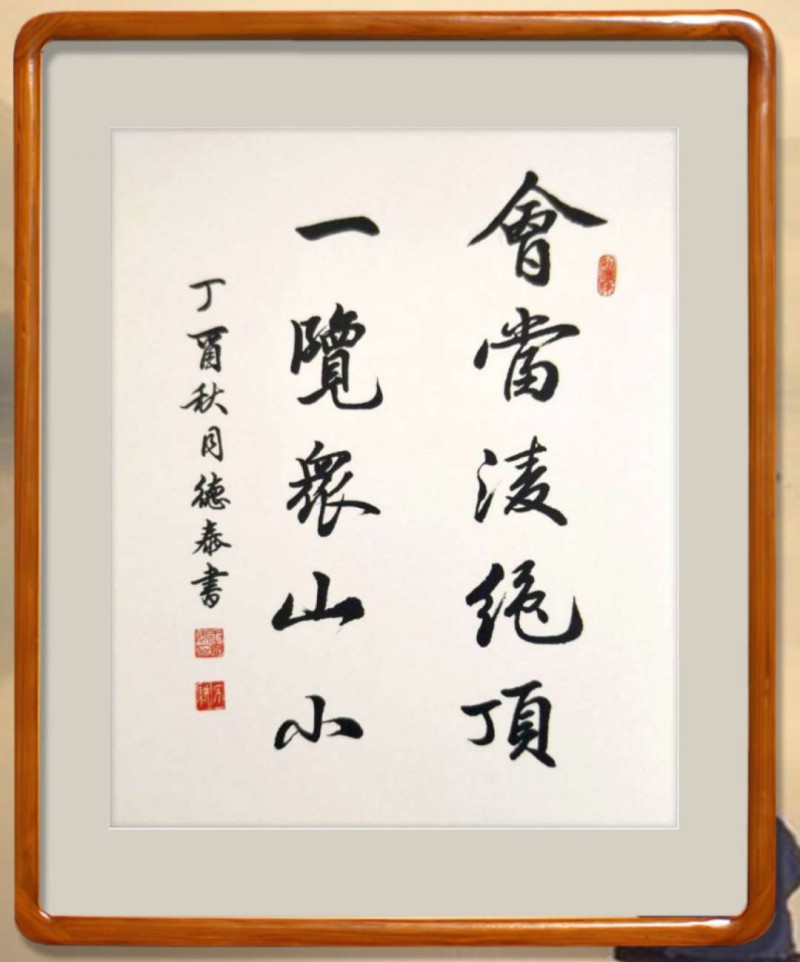 會當淩絶頂
一覽眾山小
丁酉秋月德泰書